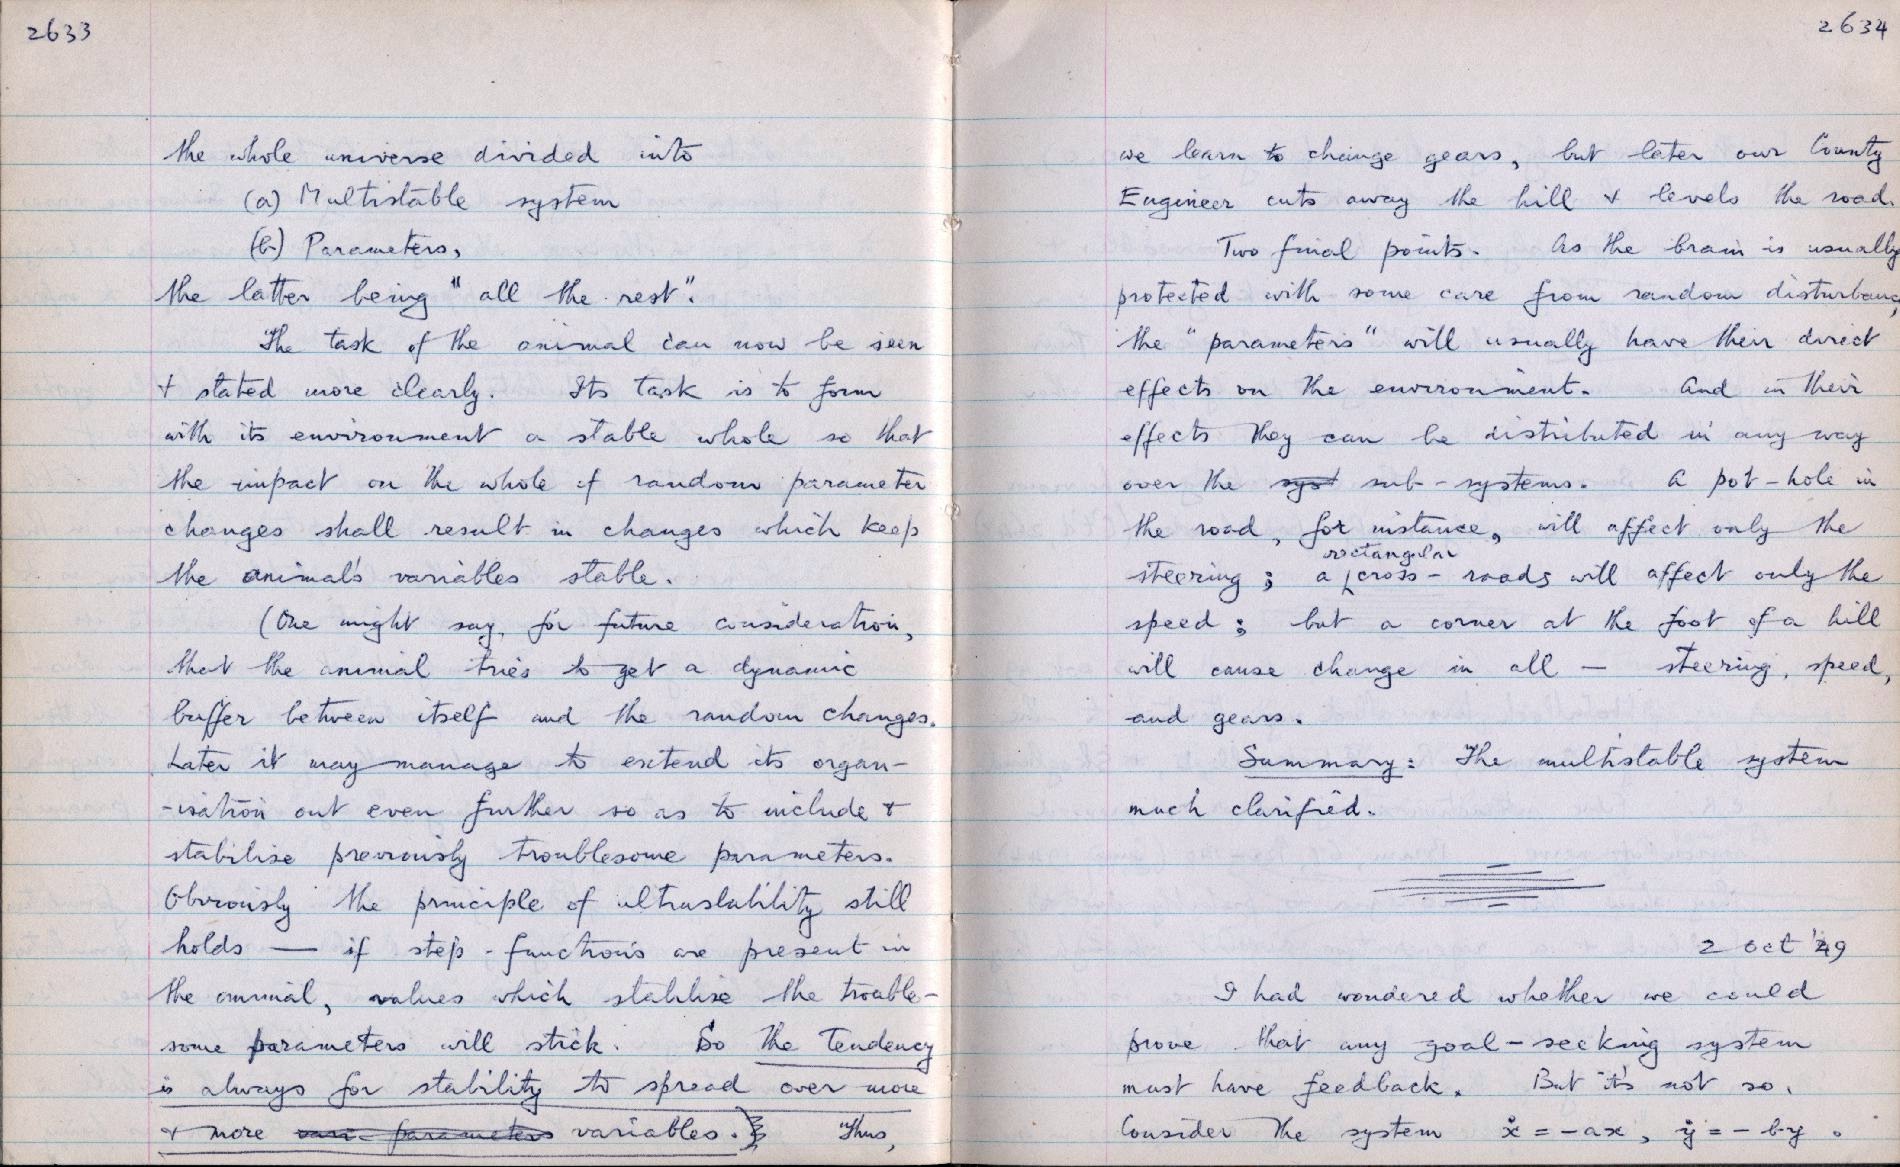 2633
the whole universe divided into
(a) Multistable system
(b) Parameters,
the latter being "all the rest".
The task of the animal can now be seen
& stated more clearly. Its task is to form
with its environment a stable whole so that
the impact on the whole of random parameter
changes shall result in changes which keep
the animal's variables stable.
(One might say, for future consideration,
that the animal tries to get a dynamic
buffer between itself and the random changes.
Later it may manage to extend its organ-
-isation out even further so as to include &
stabilise previously troublesome parameters.
Obviously the principle of ultrastability still
holds — if step-functions are present in
the animal, values which stabilise the trouble-
some parameters will stick. So the tendency
is always for stability to spread over more
& more vari- parameters variables.) Thus,
2634
we learn to change gears, but later our County
Engineer cuts away the hill & levels the road.
Two final points. As the brain is usually
protected with some care from random disturbance,
the "parameters" will usually have their direct
effects on the environment. And in their
effects they can be distributed in any way
over the syst sub-systems. A pot-hole in
the road, for instance, will affect only the
rectangular
steering; a cross-roads will affect only the
speed; but a corner at the foot of a hill
will cause change in all — steering, speed,
and gears.
Summary: The multistable system
much clarified.
2 Oct '49
I had wondered whether we could
prove that any goal-seeking system
must have feedback. But it's not so.
Consider the system ẋ = -ax, ẏ = -by.